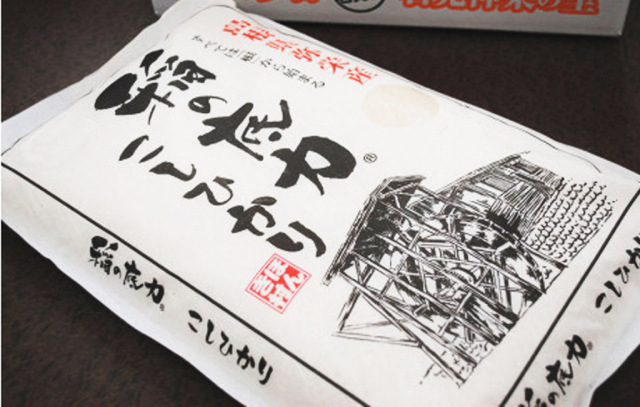 島根県弥栄産
すべては「根」から始まる
稲の底力®
こしひかり
稲の底力®
こしひかり
こしひかり
稲の底力®